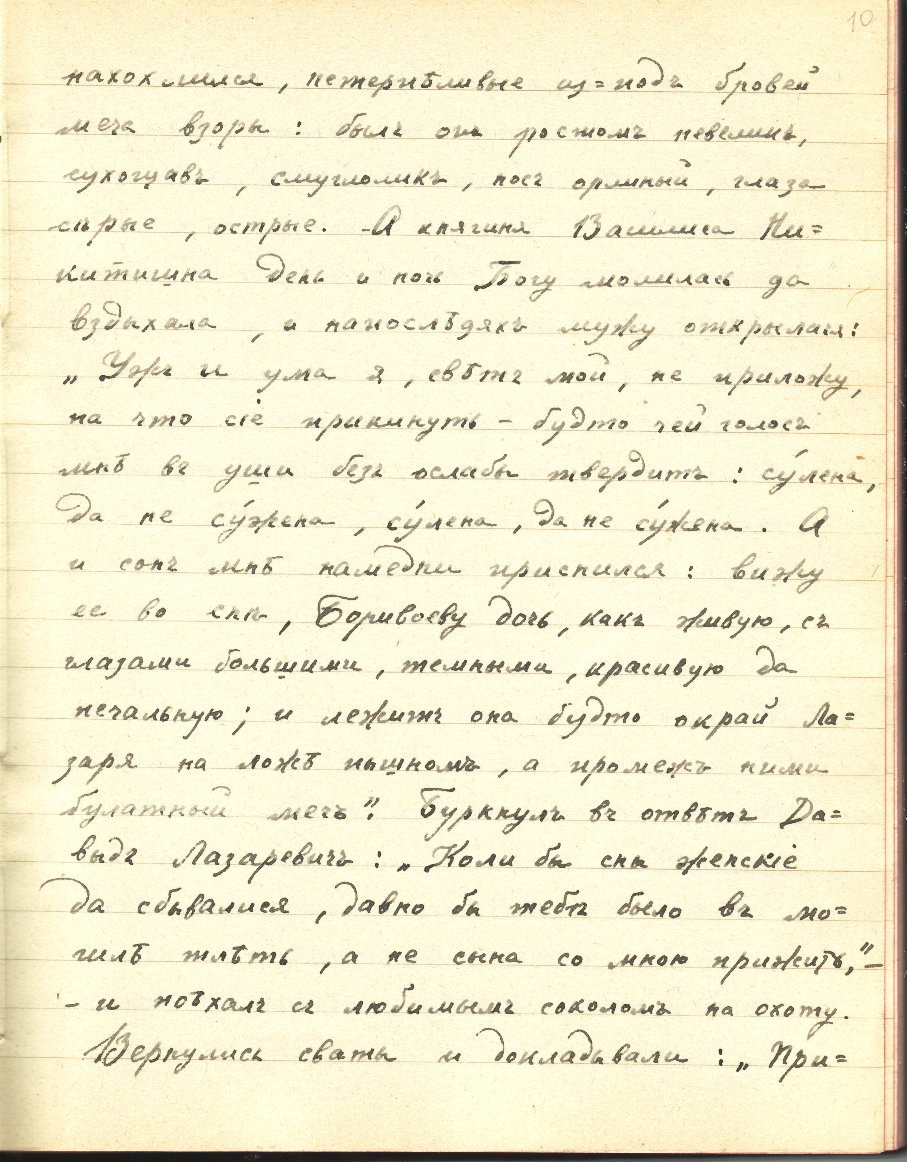 10
нахохлился, нетерпѣливые из=подъ бровей
меча взоры: былъ онъ ростомъ невеликъ,
сухощавъ, смугломикъ, носъ орлиный, глаза
сѣрые, острые. А княгиня Василиса Ни=
китишна день и ночь Богу молилась да
вздыхала, и напослѣдяхъ мужу открылася:
„Ужъ и ума я, свѣтъ мой, не приложу,
на что сіе прикинуть – будто чей голосъ
мнѣ въ уши безъ ослабы твердитъ: су́лена,
да не су́жена, су́лена, да не су́жена. А
и сонъ мнѣ намедни приснился: вижу
ее во снѣ, Боривоеву дочь, какъ живую, съ
глазами большими, темными, красивую да
печальную; и лежитъ она будто окрай Ла=
заря на ложѣ пышномъ, а промежъ ними
булатный мечъ". Буркнулъ въ отвѣтъ Да=
выдъ Лазаревичъ: „Коли бы сны женскіе
да сбывалися, давно бы тебѣ было въ мо=
гилѣ тлѣть, а не сына со мною прижить," –
– и поѣхалъ съ любимымъ соколомъ на охоту.
Вернулись сваты и докладывали: „При=